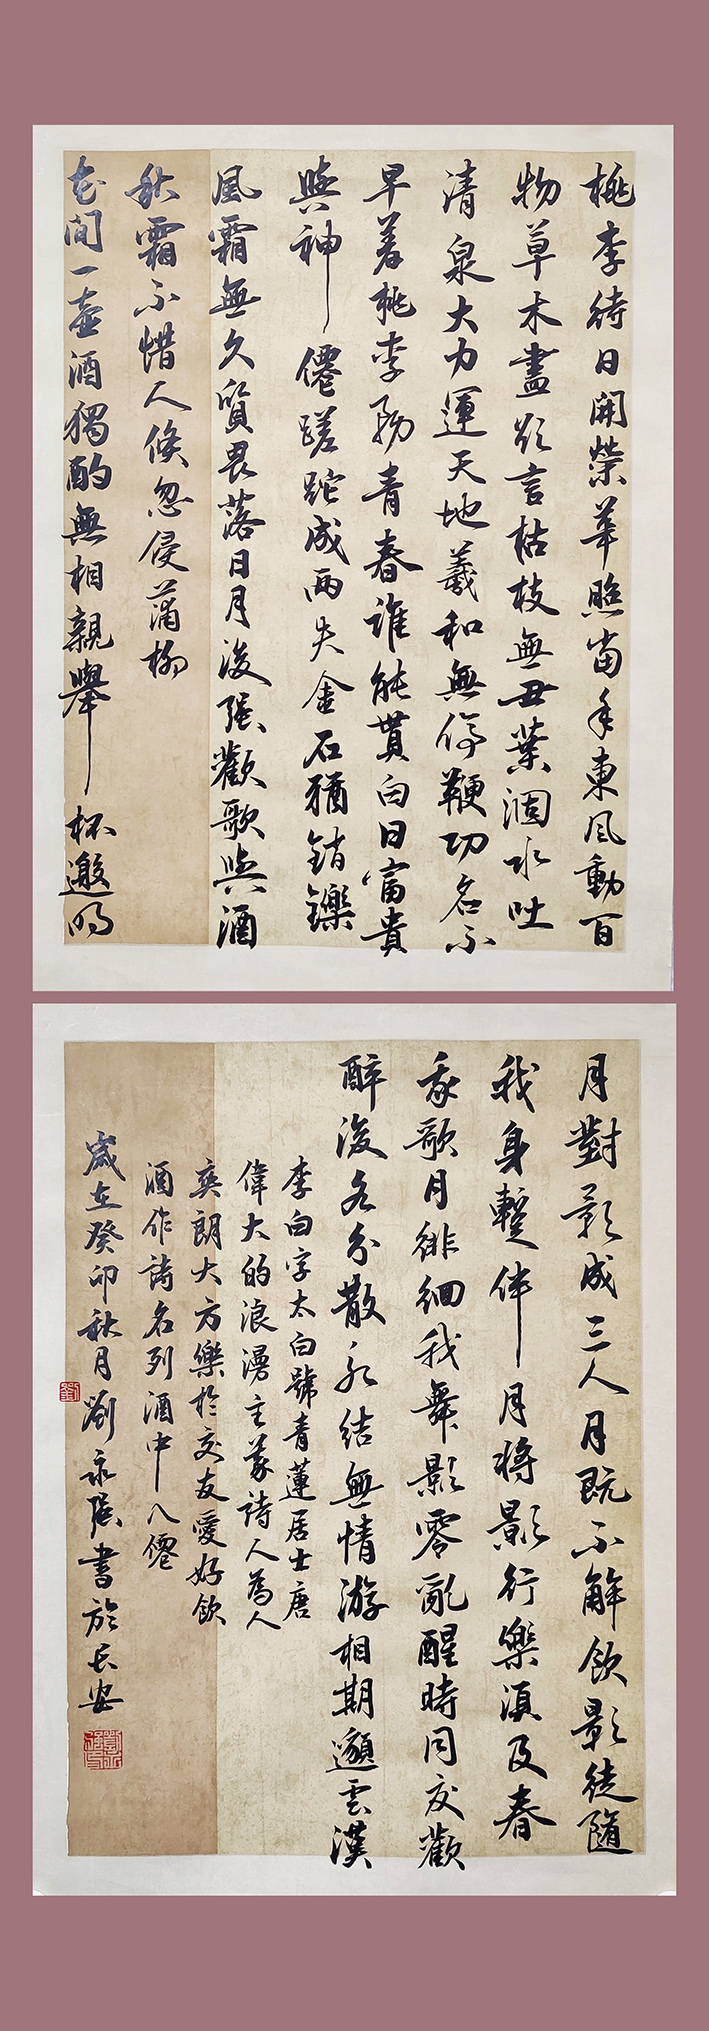 桃李待日開榮華照當年東風動百
物草木盡欲言枯枝無丑葉涸水吐
清泉大力運天地羲和無停鞭功名不
早著桃李務青春誰能貫白日富貴
與神僊蹉跎成兩失金石猶銷鑠
風霜無久質畏落日月後強歡歌與酒
秋霜不惜人倏忽侵蒲柳
花間一壺酒獨酌無相親舉杯邀明
月對影成三人月既不解飲影徒隨
我身暫伴月將影行樂須及春
我歌月徘徊我舞影零亂醒時同交歡
醉後各分散永結無情游相期邈雲漢
李白字太白號青蓮居士唐
偉大的浪漫主義詩人為人
爽朗大方樂於交友愛好飲
酒作詩名列酒中八僊
歲在癸卯秋月劉永強書於長安